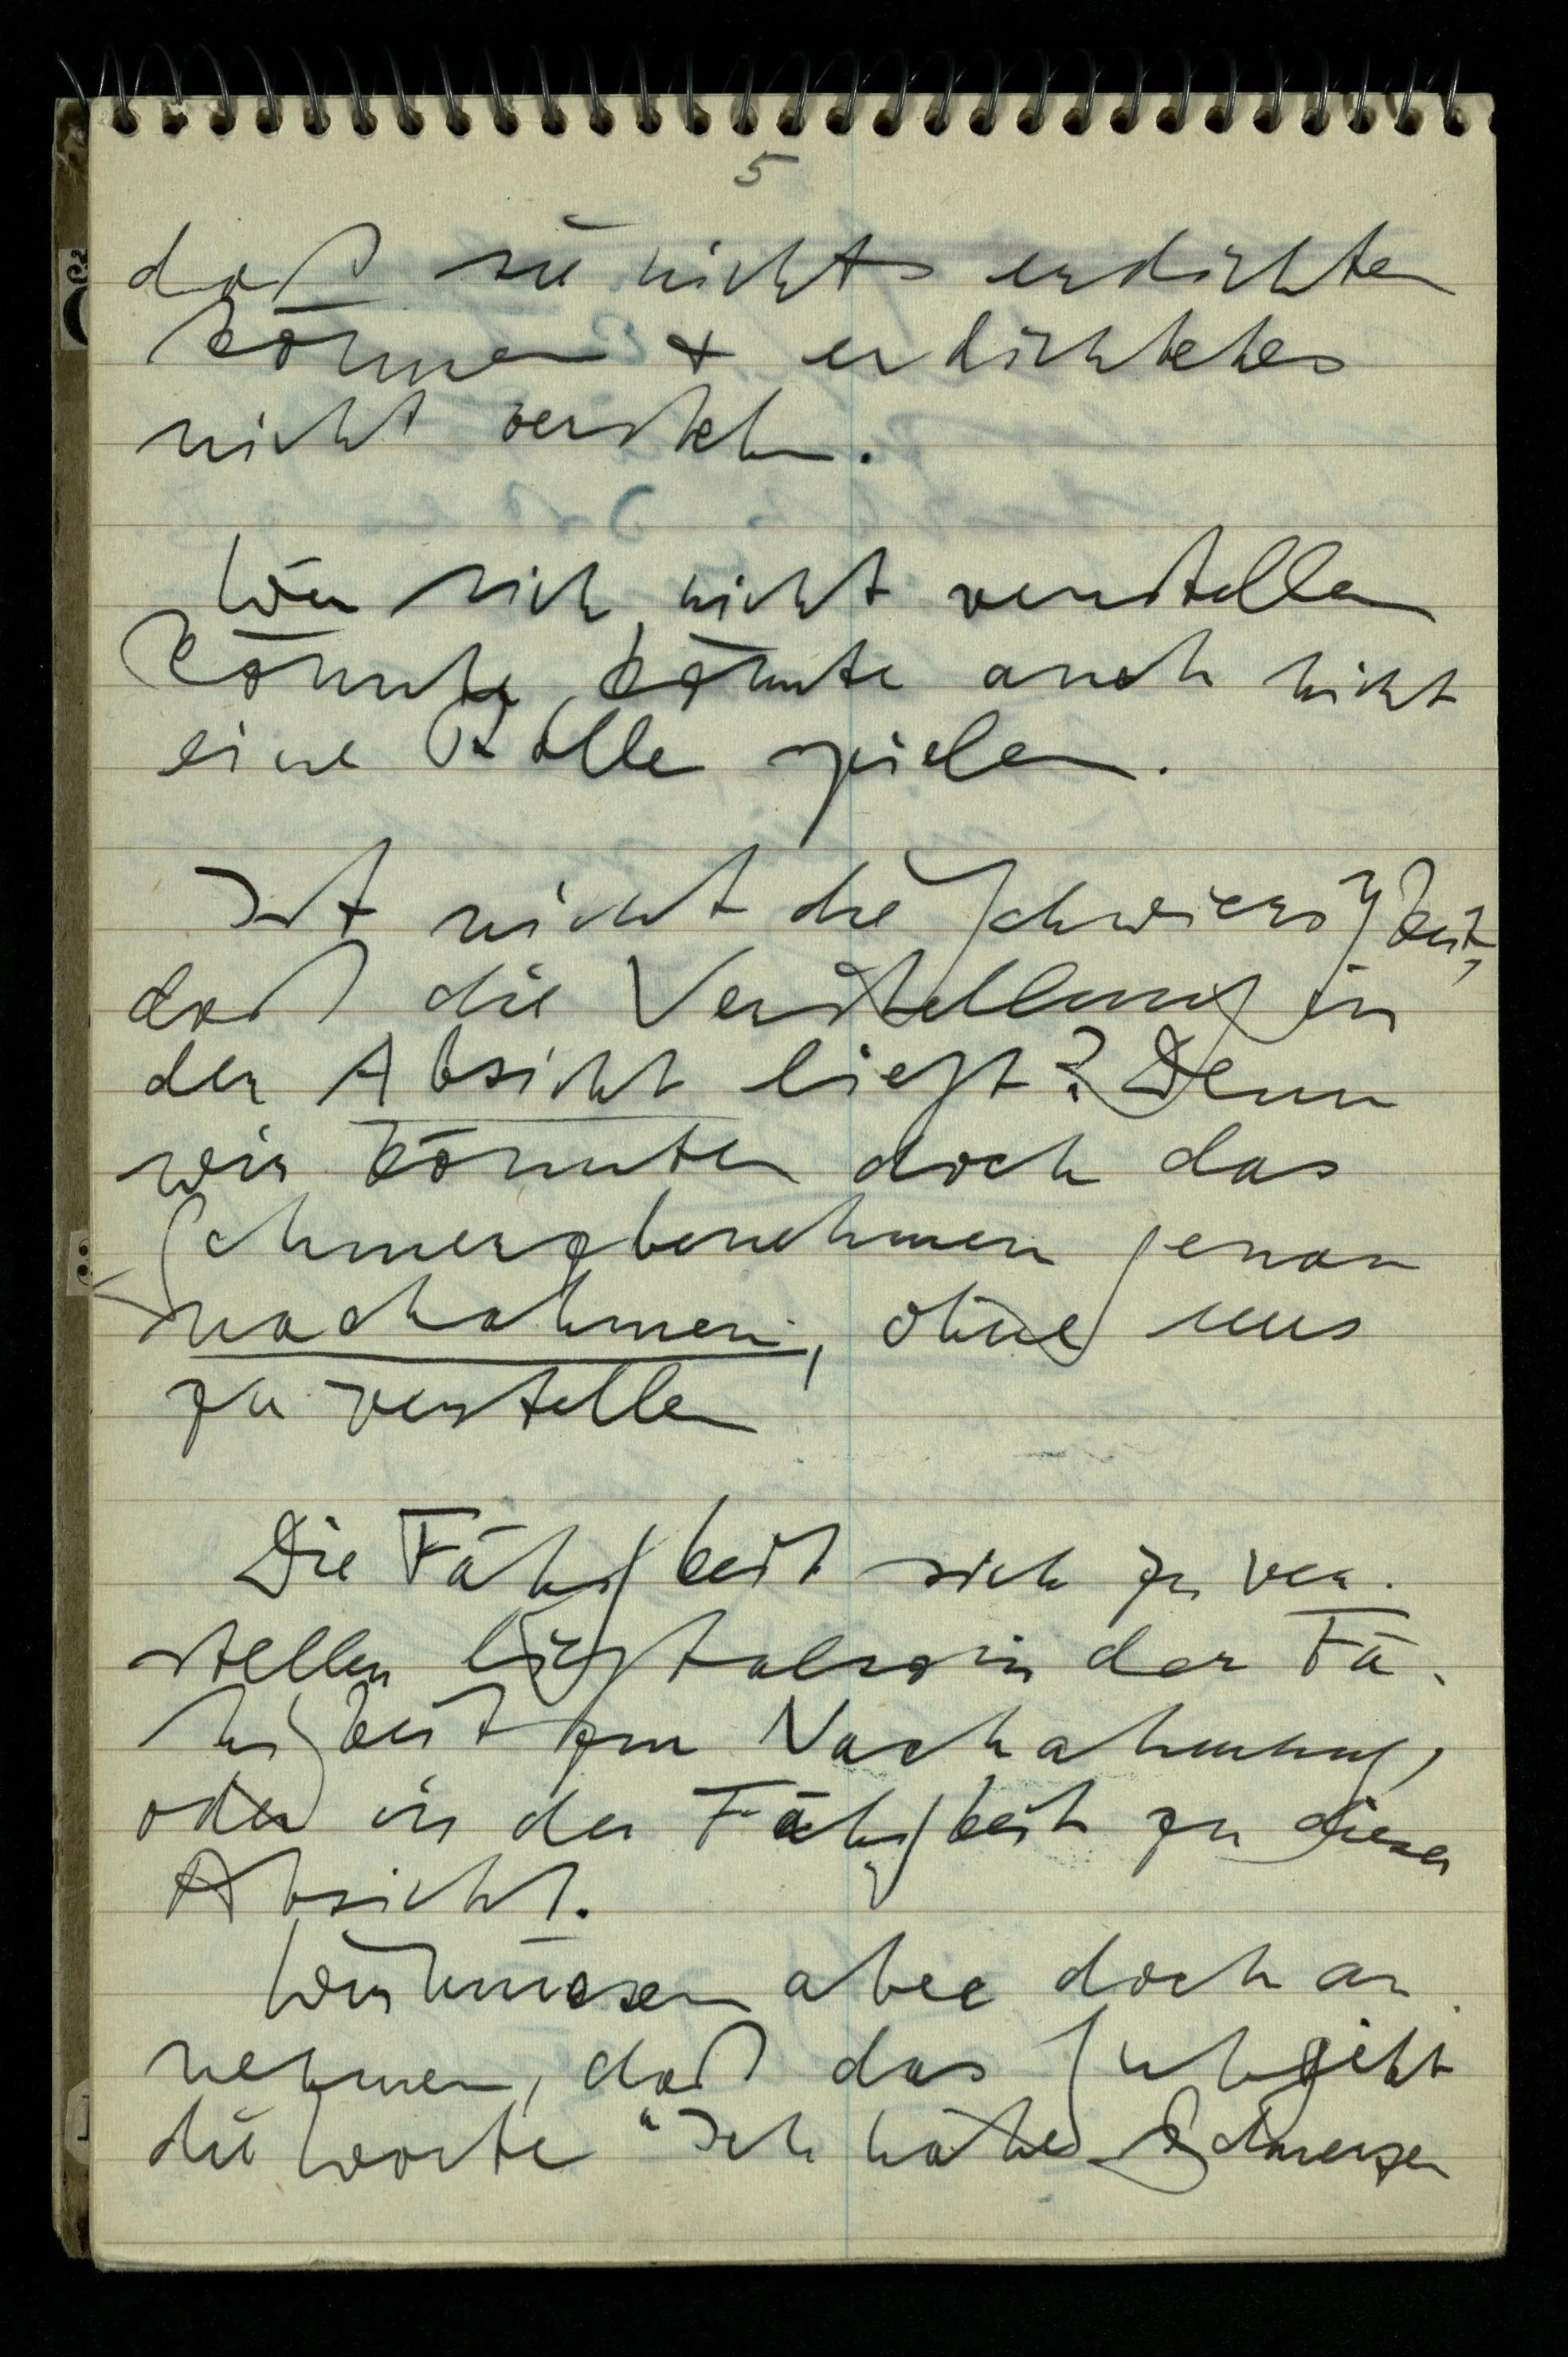 5
daß sie nichts erdichten
können + erdichtetes
nicht verstehn.
Wer sich nicht verstellen
könnte, könnte auch nicht
eine Rolle spielen.
Ist nicht die Schwierigkeit,
daß die Verstellung in
der Absicht liegt? Denn
wir könnten doch das
Schmerzbenehmen genau
nachahmen, ohne uns
zu verstellen
Die Fähigkeit sich zu ver-
stellen liegt also in der Fä-
higkeit zur Nachahmung,
oder in der Fähigkeit zu dieser
Absicht.
Wir müssen aber doch an-
nehmen, daß das Subjekt
die Worte "Ich habe Schmerzen